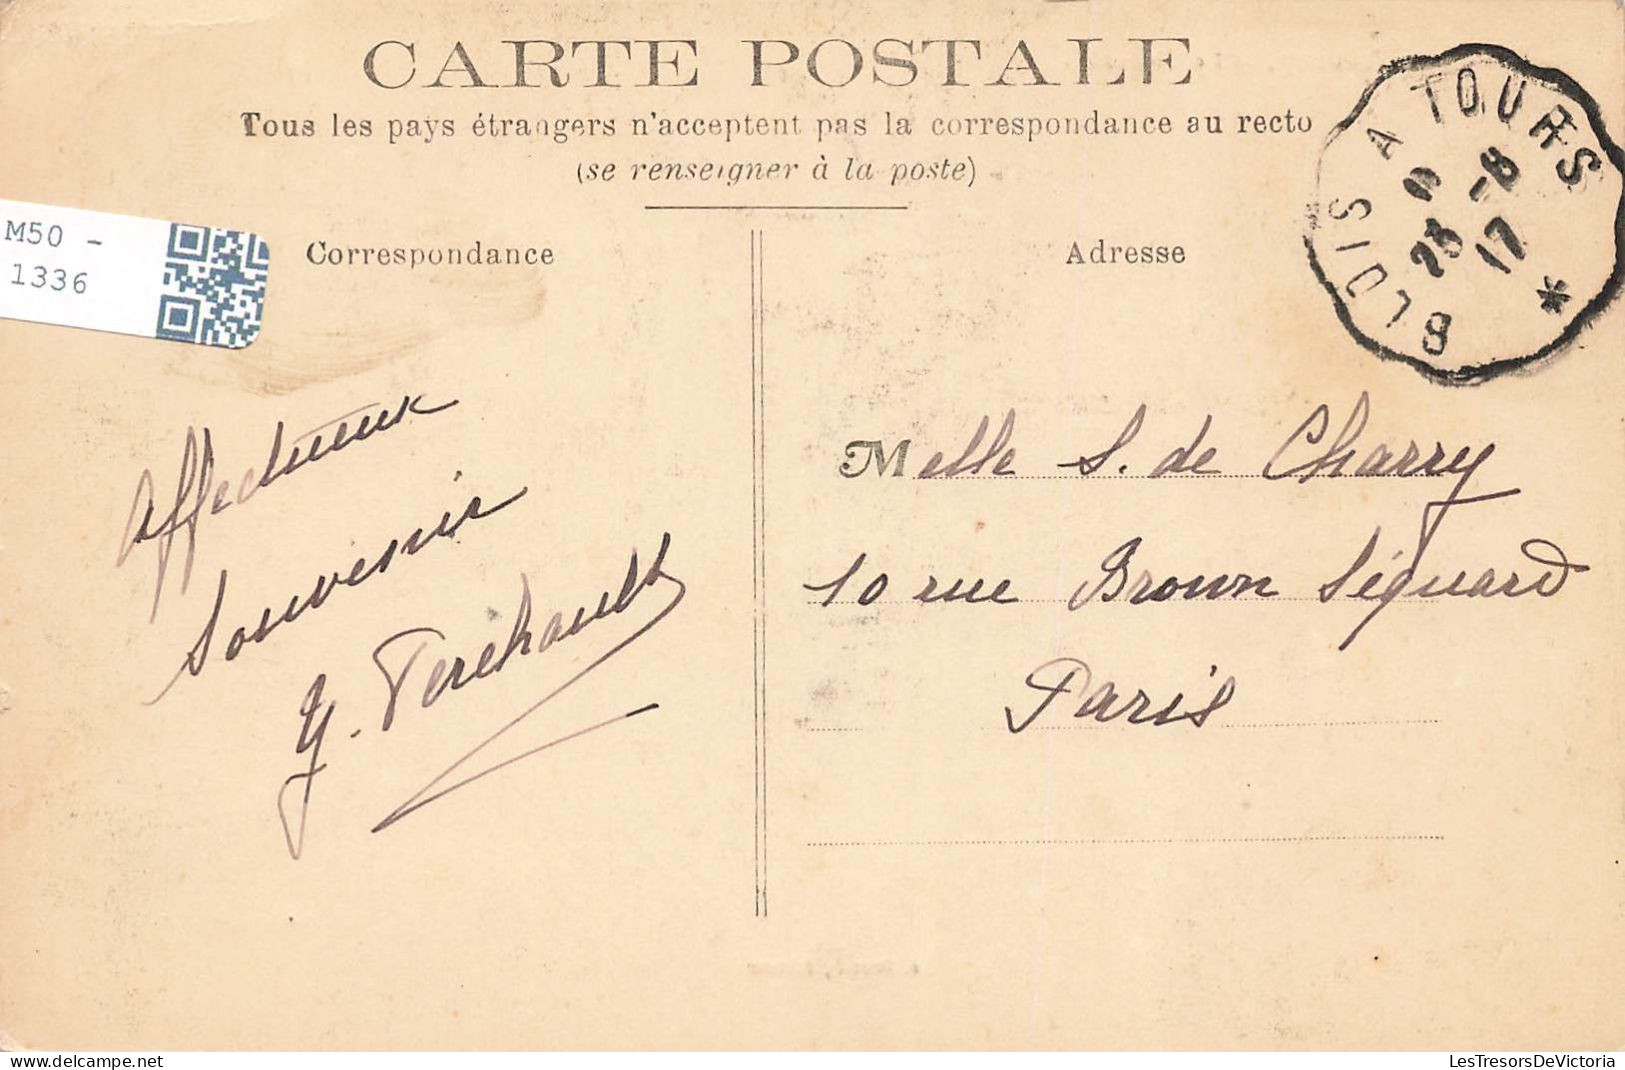 CARTE POSTALE
Tous les pays étrangers n'acceptent pas la correspondance au recto
(se renseigner à la poste)
M50 -
1336
Correspondance
Adresse
BLOIS A TOURS *
28 -8
17
Affectueux
souvenir
Y. Perchault
Melle S. de Charry
10 rue Brown Séquard
Paris
LesTresorsDeVictoria